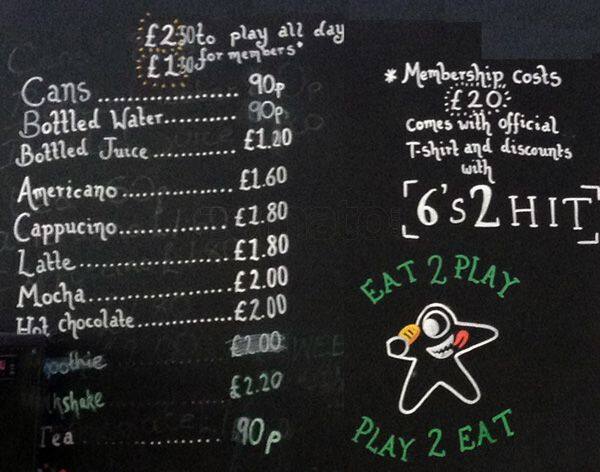 £2.50 to play all day
£1.50 for members*
Cans 90p
Bottled Water 90p
Bottled Juice £1.20
Americano £1.60
Cappucino £1.80
Latte £1.80
Mocha £2.00
Hot chocolate £2.00
oothie £2.00
kshake £2.20
Tea 90p
* Membership costs
£20
Comes with official
T-shirt and discounts
with
[6's2HIT]
EAT 2 PLAY
PLAY 2 EAT